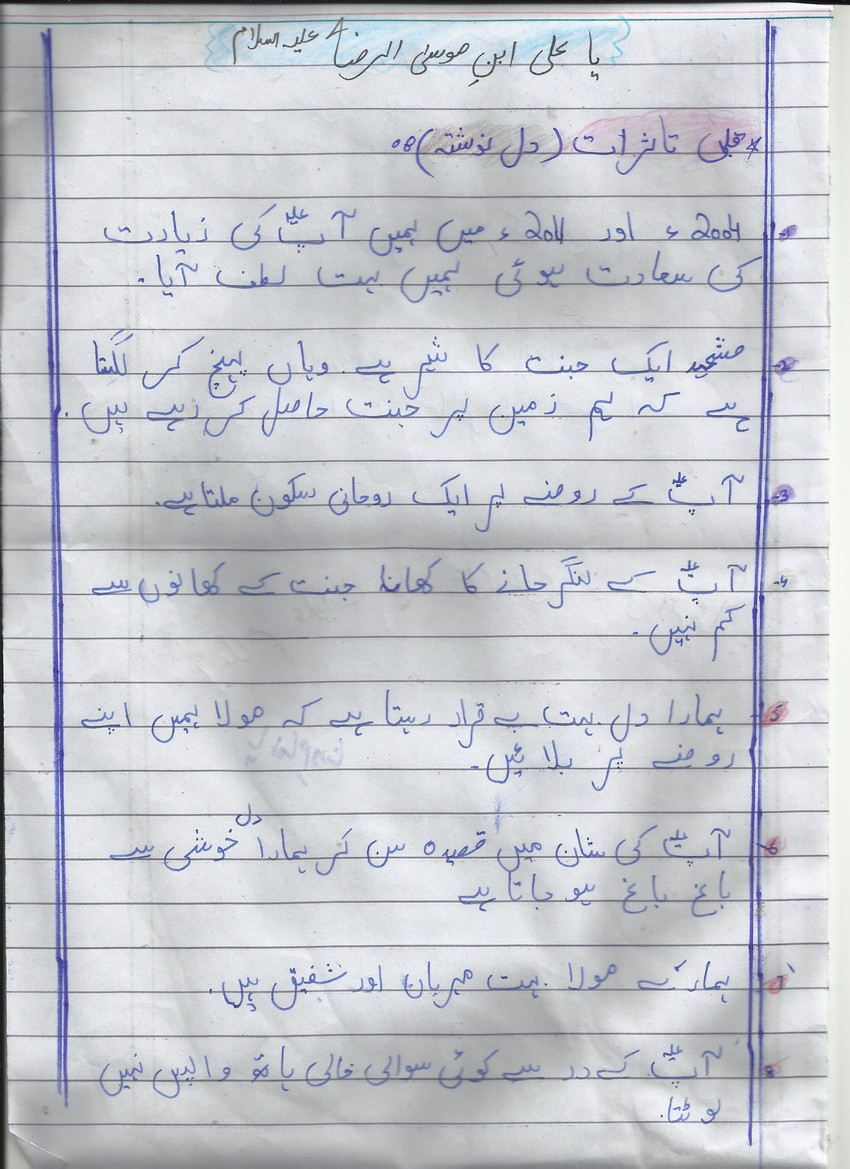 یا علی ابنِ موسیٰ الرضا علیہ السلام
* قلبی تاثرات (دل نوشتہ) :-
1- 2004ء اور 2011ء میں ہمیں آپؑ کی زیارت
کی سعادت ہوئی ہمیں بہت لطف آیا۔
2- مشہد ایک جنت کا شہر ہے۔ وہاں پہنچ کر لگتا
ہے کہ ہم زمین پر جنت حاصل کر رہے ہیں۔
3- آپؑ کے روضے پر ایک روحانی سکون ملتا ہے۔
4- آپؑ کے لنگر خانے کا کھانا جنت کے کھانوں سے
کم نہیں۔
5- ہمارا دل بہت بے قرار رہتا ہے کہ مولا ہمیں اپنے
روضے پر بلائیں۔
6- آپؑ کی شان میں قصیدہ سن کر ہمارا دل خوشی سے
باغ باغ ہو جاتا ہے
7- ہمارے مولا بہت مہربان اور شفیق ہیں۔
8- آپؑ کے در سے کوئی سوالی خالی ہاتھ واپس نہیں
لوٹتا۔